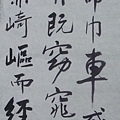 命巾車或
既窈窕
亦崎嶇而經